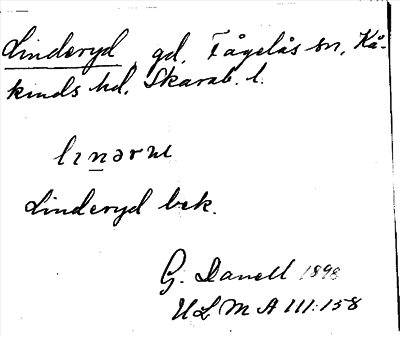 Linderyd, gd, Fågelås sn, Kå-
kinds hd, Skarab. l.
Linderyd bek.
G. Danell 1898
ULMA 111:158